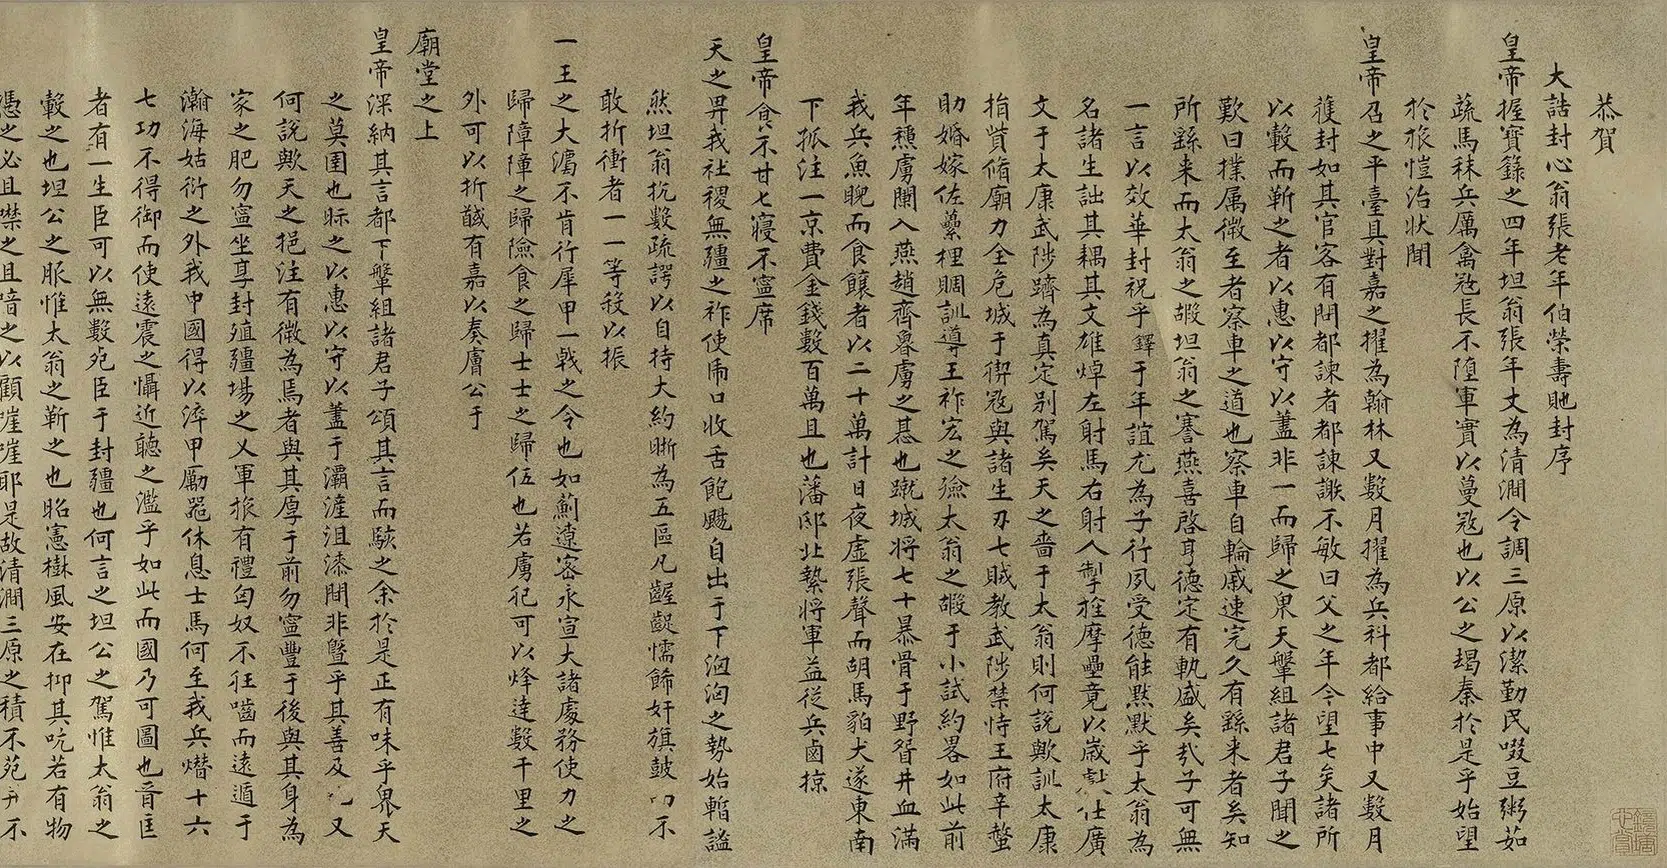 恭賀
大誥封心翁張老年伯榮壽貤封序
皇帝握寶錄之四年坦翁張年丈為清澗令調三原以潔勤民啜豆粥茹
蔬馬秣兵厲禽寇長不墮軍實以蔓寇也以公之竭秦於是乎始望
於旅愷治狀聞
皇帝召之平臺具對嘉之擢為翰林又數月擢為兵科都給事中又數月
獲封如其官客有問都諫者都諫謝不敏曰父之年今望七矣諸所
以轂而靳之者以惠以守以藎非一而歸之帠天犖組諸君子聞之
歎曰樸屬微至者察車之道也察車自輪戚速完久有繇来者矣知
所繇来而大翁之嘏坦翁之謇燕喜啓亨德定有執盛矣㢤子可無
一言以效華封祝乎鐸于年誼尤為子行夙受德能黙默乎太翁為
名諸生詘其耦其文雄焯左射馬右射人掣拴摩壘竟以歲獻仕廣
文于太康武陟躋為真定別駕矣天之嗇于太翁則何說歟訓太康
捐貲脩廟力全危城于禊寇與諸生刃七賊教武陟禁恃王府辛螫
助婚嫁佐虆梩賙訓導王祚宏之殮太翁之嘏于小試約畧如此前
年穗虜闌入燕趙齊魯虜之惎也蹴城将七十暴骨于野眢井血滿
我兵魚睨而食饟者以二十萬計日夜虛張聲而胡馬貃犬遂東南
下孤注一京費金錢數百萬且也藩邸北縶將軍益従兵鹵掠
皇帝食不甘七寢不寧席
天之畀我社稷無疆之祚使虜口收舌飽颺自出于下洶洶之勢始暫謐
然坦翁抗數疏諤以自持大約晰為五區凡齷齪懦飾奸旗鼓 不
敢折衝者一一等殺以振
一王之大灋不肯行犀甲一戟之令也如薊遼密永宣大諸處務使力之
歸障障之歸險食之歸士士之歸伍也若虜犯可以烽達數千里之
外可以折馘有嘉以奏膚公于
廟堂之上
皇帝深納其言都下犖組諸君子頌其言而駭之余於是正有味乎畀天
之莫圉也眎之以惠以守以藎于灞滻沮漆間非暨乎其善及 又
何說歟天之挹注有微為馬者與其厚于前勿寧豐于後與其身為
家之肥勿寧坐享封殖疆埸之乂軍旅有禮匈奴不狂嚙而遠遁于
瀚海姑衍之外我中國得以淬甲勵噐休息士馬何至我兵熸十六
七功不得御而使遠震之懾近聴之濫乎如此而國乃可圖也晉匡
者有一生臣可以無數死臣于封疆也何言之坦公之駕惟太翁之
轂之也坦公之服惟太翁之靳之也昭憲樹風安在抑其吭若有物
憑之必且噤之且喑之以顧嗺嗺耶是故清澗三原之積不菀 不